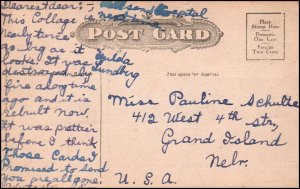 Dearest dear:
This Collage is
nearly twice
as big as it
looks. It was
destroyed by
fire along time
ago and it is
rebuilt now.
It was prettier
before I think
Those Cards I
Promised to send
you are all gone.
POST CARD
THIS SPACE FOR ADDRESS
Place
Stamp Here
Domestic
One Cent
Foreign
Two Cents
Miss Pauline Schulte
412 West 4th str,
Grand Island
Nebr.
U. S. A.